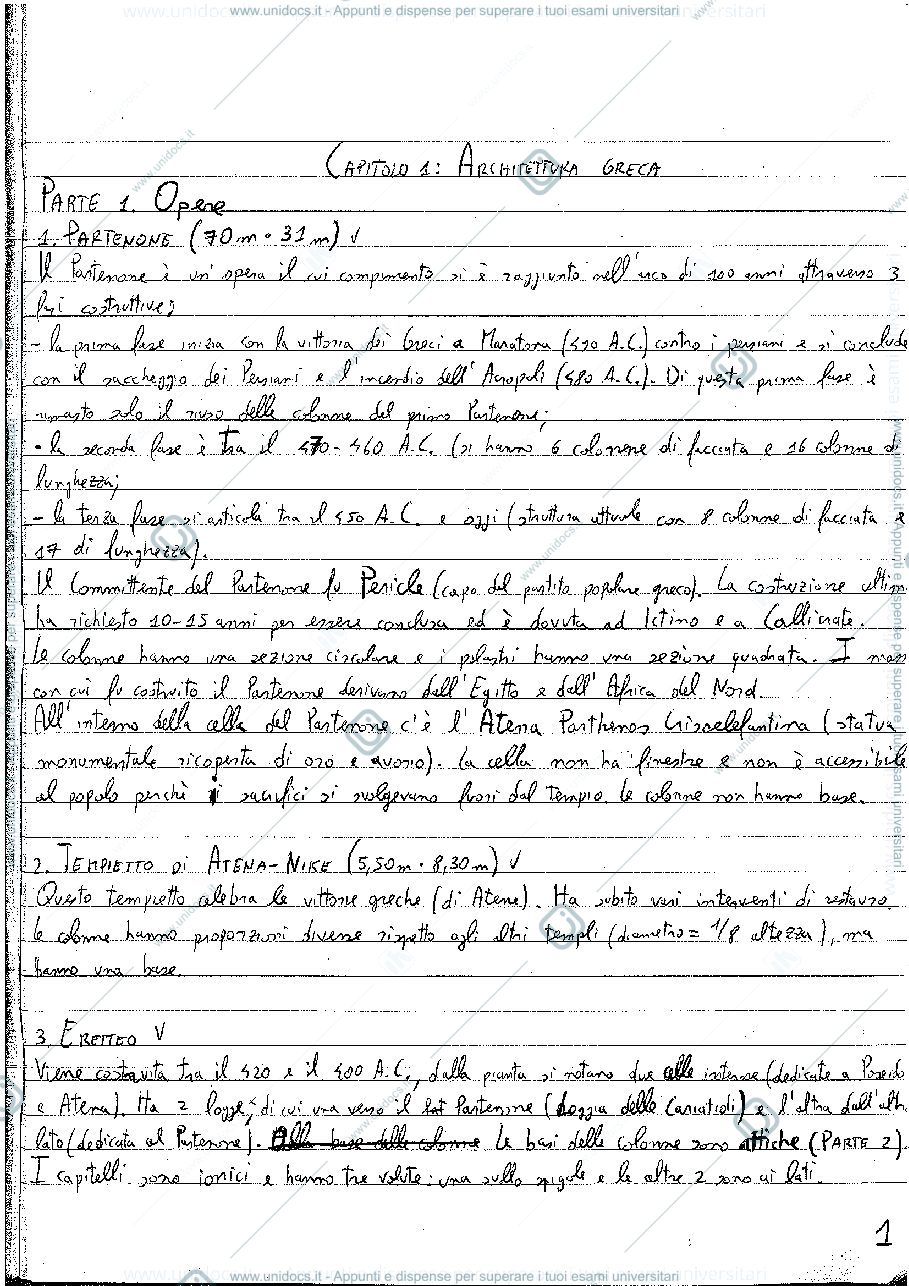 www.unidocs.it - Appunti e dispense per superare i tuoi esami universitari
CAPITOLO 1: ARCHITETTURA GRECA
PARTE 1. Opere
1. PARTENONE (70m · 31m) V
Il Partenone è un'opera il cui compimento si è raggiunto nell'arco di 100 anni attraverso 3
fasi costruttive:
- la prima fase inizia con la vittoria dei Greci a Maratona (490 A.C.) contro i persiani e si conclude
con il saccheggio dei Persiani e l'incendio dell'Acropoli (480 A.C.). Di questa prima fase è
rimasto solo il raso delle colonne del primo Partenone;
- la seconda fase è tra il 470-460 A.C. (si hanno 6 colonnene di facciata e 16 colonne di
lunghezza;
- la terza fase si articola tra il 450 A.C. e oggi (struttura attuale con 8 colonne di facciata e
17 di lunghezza).
Il Committente del Partenone fu Pericle (capo del partito popolare greco). La costruzione ultim
ha richiesto 10-15 anni per essere conclusa ed è dovuta ad Ictino e a Callicrate.
Le colonne hanno una sezione circolare e i pilastri hanno una sezione quadrata. I mar
con cui fu costruito il Partenone derivano dall'Egitto e dall'Africa del Nord.
All'interno della cella del Partenone c'è l'Atena Parthenos Crisoelefantina (statua
monumentale ricoperta di oro e avorio). La cella non ha finestre e non è accessibile
al popolo perchè i sacrifici si svolgevano fuori dal tempio. Le colonne non hanno base.
2. TEMPIETTO DI ATENA-NIKE (5,50m · 8,30m) V
Questo tempietto celebra le vittorie greche (di Atene). Ha subito vari interventi di restauro.
Le colonne hanno proporzioni diverse rispetto agli altri templi (diametro = 1/8 altezza), ma
hanno una base.
3. ERETTEO V
Viene costruita tra il 420 e il 400 A.C., dalla pianta si notano due celle interne (dedicate a Poseido
e Atena). Ha 2 logge, di cui una verso il Partenone (Loggia delle Cariatidi) e l'altra dall'alt
lato (dedicata al Partenone). Alla base delle colonne Le basi delle colonne sono attiche (PARTE 2).
I capitelli sono ionici e hanno tre volute: una sullo spigolo e le altre 2 sono ai lati.
1
www.unidocs.it - Appunti e dispense per superare i tuoi esami universitari